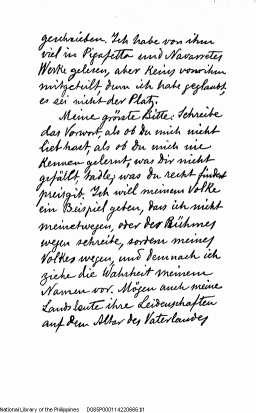 geschrieben. Ich habe von ihm
viel in Pigafetta und Navarretes
Werke gelesen, aber Keins von ihm
mitgeteilt denn ich habe geglaubt
es sei nicht der Platz.
Meine grösste Bitte: Schreibe
das Vorwort, als ob Du mich nicht
lieb hast, als ob Du mich nie
Kennen gelernt, was Dir nicht
gefällt, tadle, was du recht findest
preisgib. Ich will meinem Volke
ein Beispiel geben, das ich nicht
meinetwegen, oder des Rühmes
wegen schreibe, sondern meines
Volkes wegen, und demnach ich
ziehe die Wahrheit meinem
Namen vor. Mögen auch meine
Landsleute ihre Leidenschaften
auf dem Altar des Vaterlandes
National Library of the Philippines D085P000114220686.tif